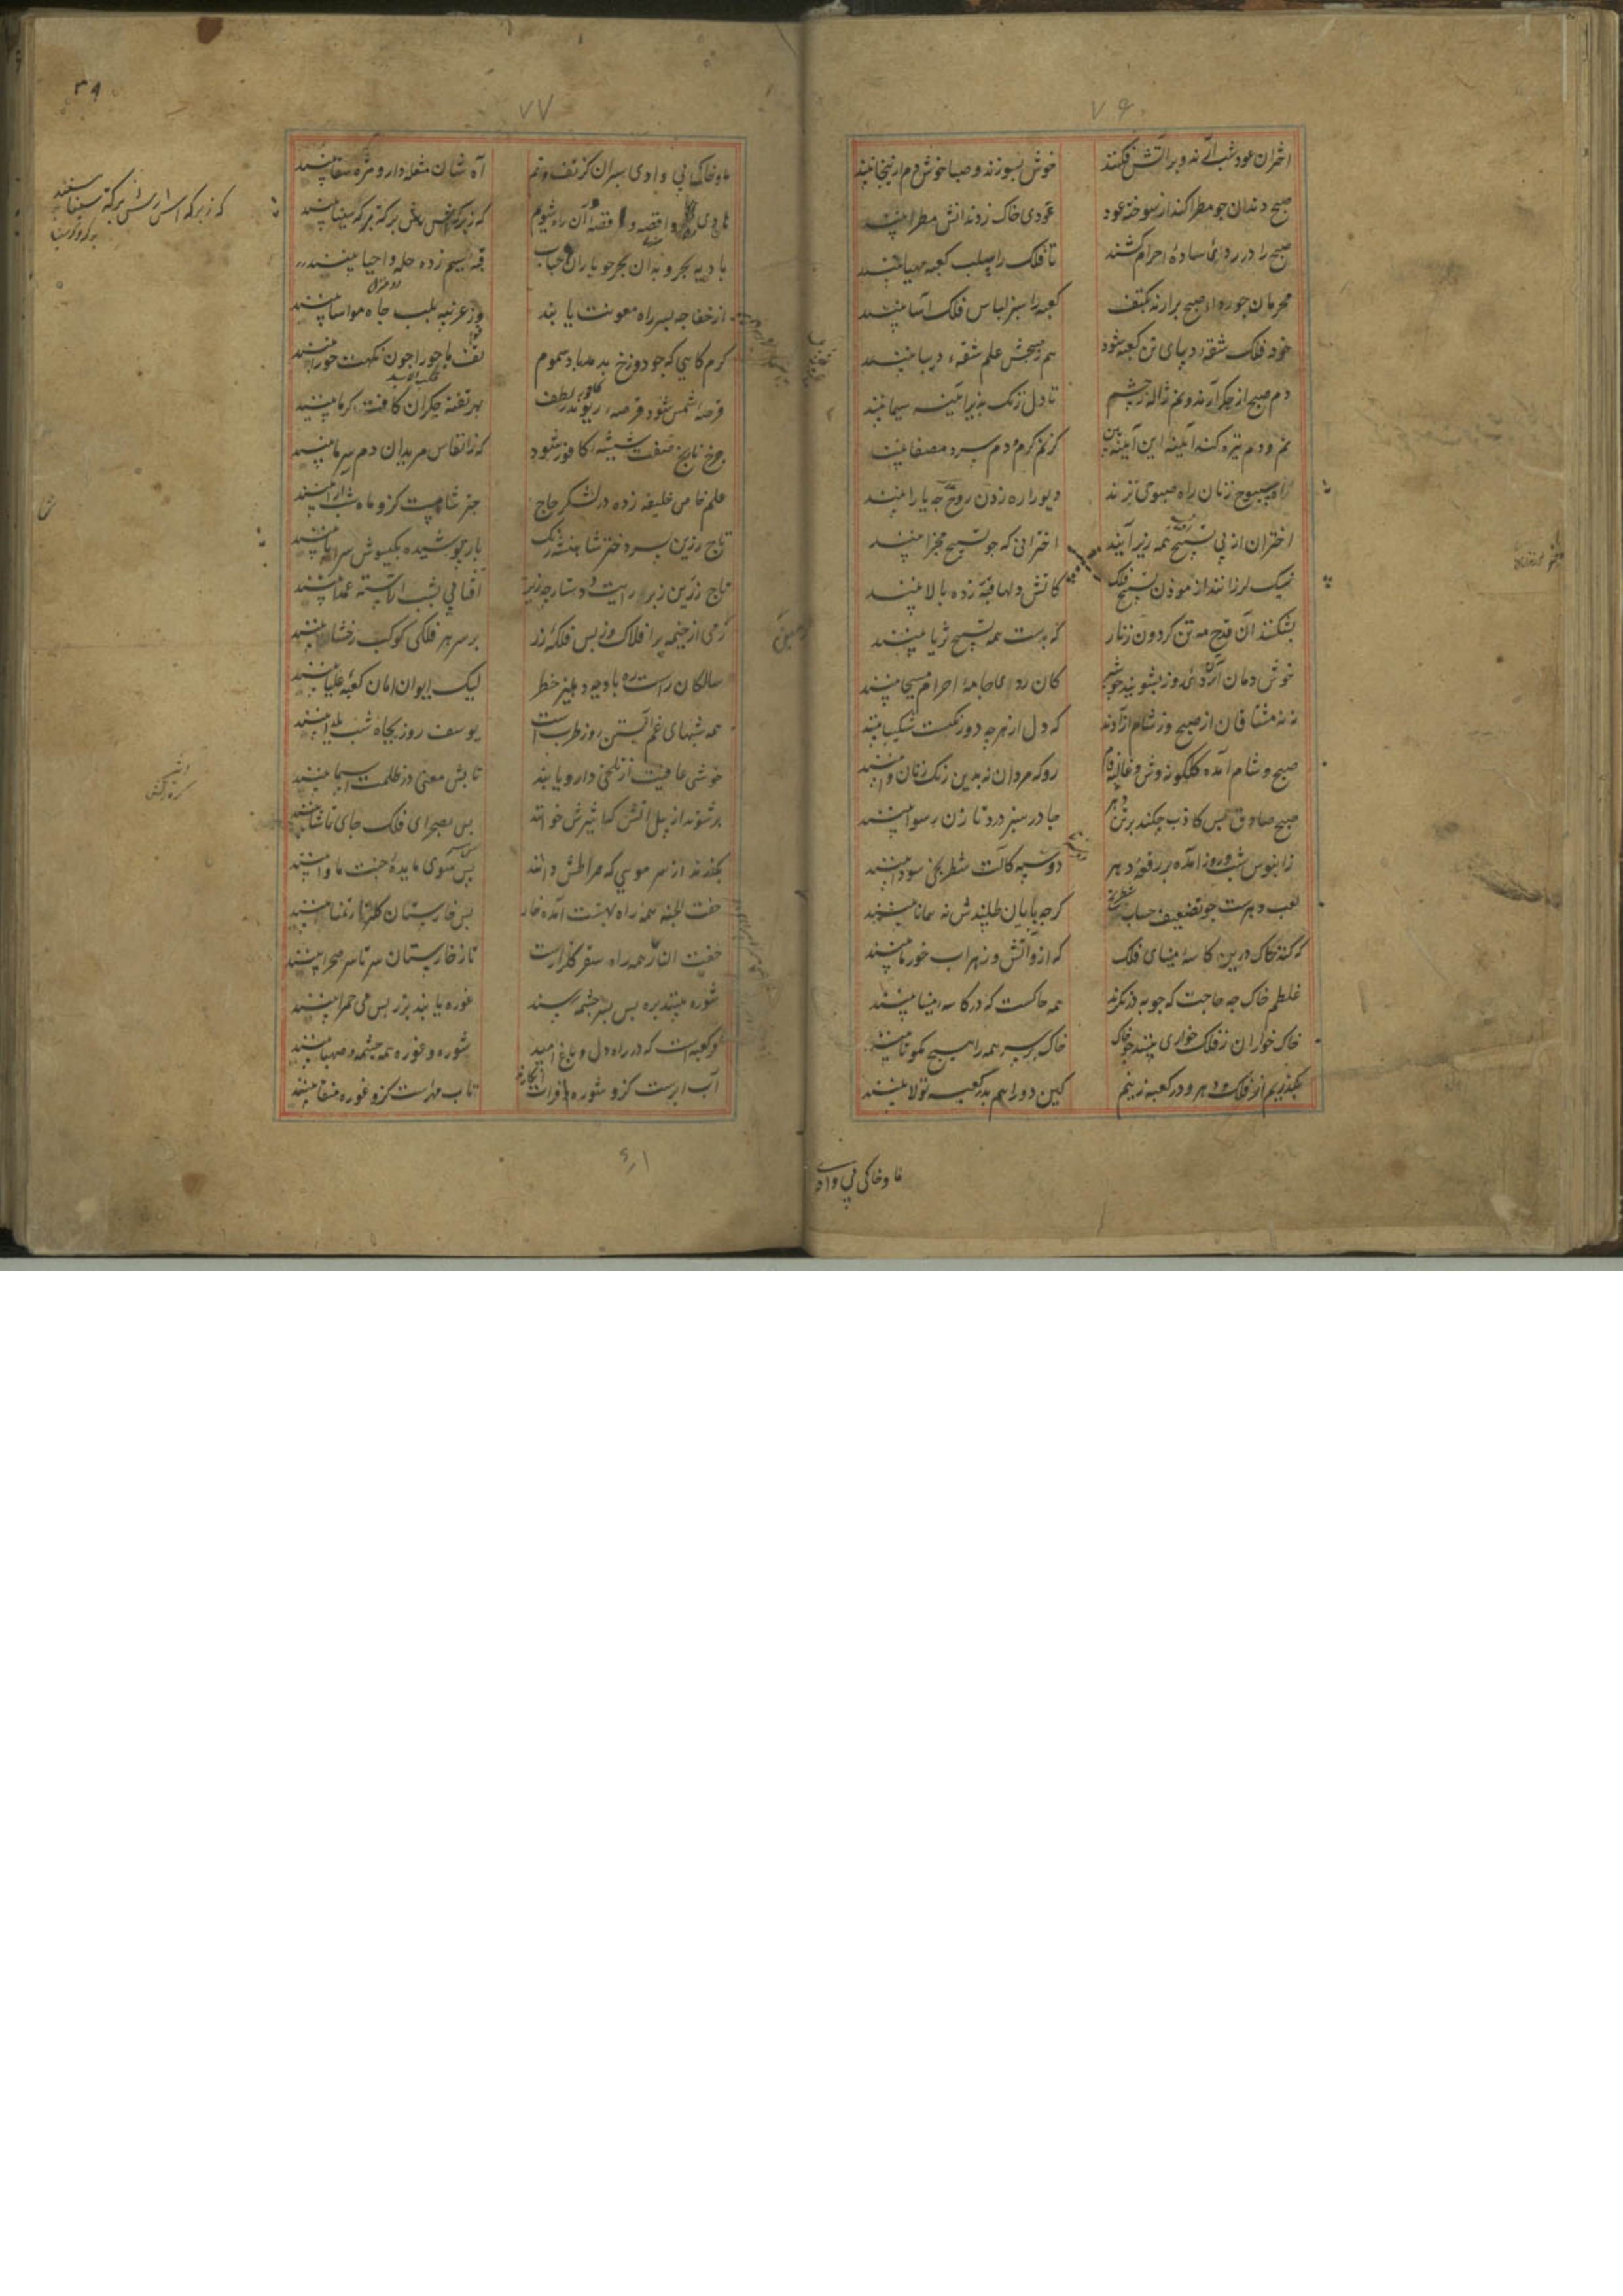 ۷۶
اختران عود شب آرند و بر آتش فکنند خوش بسوزند و صبا خوش دم ازینجا بینند
صبح دندان چو مطرا کند از سوخته عود عودی خاک ز دندانش مطرا بینند
صبح را در ردای ساده احرام کشند تا فلک را سلب کعبه مهیا بینند
محرمان چو ردا صبح برآرند بکتف کعبه را سبز لباس فلک آسا بینند
خود فلک شقه دیبای تن کعبه شود هم ز صبحش علم شقه دیبا بینند
دم صبح از جگر آرند و نم ژاله ز چشم تا دل زنگ پذیر آینه سیما بینند
نم و دم تیره کند آینه این آینه بین کز نم گرم و دم سرد مصفا بینند
راه صبوح زنان راه صبوحی بزنند دیو را ره زدن روح چه یارا بینند
اختران از پی تسبیح همه زیر آیند اخترانی که چو تسبیح مجزا بینند
نیک لرزانند از موذن تسبیح فلک کآتش دلها قبه زده بالا بینند
بشکنند آن قدح مه تن گردون زنار که بدست همه تسبیح ثریا بینند
خوش دمان آن ردای روز بشویند چو شیر کان ردا جامه احرام مسیحا بینند
نه نه مشتاقان از صبح و ز شام آزادند که دل از هرچه دو رنگست شکیبا بینند
صبح و شام آمده گلگونه وش و غالیه فام رو که مردان نه بدین رنگ زنان وا بینند
صبح صادق پس کاذب چکند بر تن دهر چادر سبز درد تا زن رسوا بینند
ز آبنوس شب و روز آمده بر رقعه دهر دو سپه کالت شطرنجی سودا بینند
لعب دهرست چو تضعیف حساب شطرنج گرچه پایان طلبندش نه همانا بینند
گر کنند خاک درین کاسه مینای فلک که ازو آتش و زهراب خور ما بینند
غلطم خاک چه حاجت که چو به درنگرند همه خاکست که در کاسه مینا بینند
خاک خواران ز فلک خواری بینند چو خاک خاک بر سر همه را هیچ مگو تا بینند
بگذریم از فلک و دهر و در کعبه زنیم کین دو را هم بدر کعبه تولا بینند
ماوخاکی پی وادی
۷۷
۳۹
ماوخاکی پی وادی سپران کز تف و نم آه شان مشعله دار و مژه سقا بینند
بادی واقصه و قصه آن راه شویم که ز برکه اش برکه برکه سینا بینند
بادیه بحر و بدان بحر چو باران حباب قبه سیم زده حله و احیا بینند
از خفاجه بسر راه معونت یابند وز غزیه بلب چاه مواسا بینند
گرم گاهی که چو دوزخ بدمد باد سموم تف باحورا چون نکهت حورا بینند
قرصه شمس شود قرصه ریوند ز لطف بهر تفته جگران کافت گرما بینند
چرخ نارنج صفت شیشه کافور شود که ز انفاس مریدان دم سرما بینند
علم خاص خلیفه زده در لشکر حاج چتر شامست کزو ماه شب آرا بینند
تاج زرین بسر دختر شاهنشه زنگ باز پوشیده بگیسوش سراپا بینند
تاج زرین زبر رایت و دستارچه زیر آفتابی بشب آراسته عمدا بینند
رمی از خیمه پر افلاک و ز بس فلکه زر بر سر هر فلکی کوکب رخشا بینند
سالکان راست ره بادیه دهلیز خطر لیک ایوان امان کعبه علیا بینند
همه شبهای غم آبستن روز طربست یوسف روز بچاه شب یلدا بینند
خوشی عافیت از تلخی دارو یابند تابش معنی در ظلمت اسما بینند
بر شوند از پل آتش که اثیرش خوانند پس بصحرای فلک جای تماشا بینند
بگذرند از سر مویی که صراطش دانند پس سوی مایده جنت ماوا بینند
حفت الجنه همه راه بهشت آمده خار پس خارستان گلزار تمنا بینند
حفت النار همه راه سقر گلزارست باز خارستان سر تا سر صحرا بینند
شوره بینند بره پس بسر چشمه رسند غوره یابند برز پس می حمرا بینند
وز کعبه است که در راه دل و باغ امید شوره و غوره همه چشمه و صهبا بینند
آب ابرست کزو شوره فرات انگارند تاب مهرست کزو غوره منقا بینند